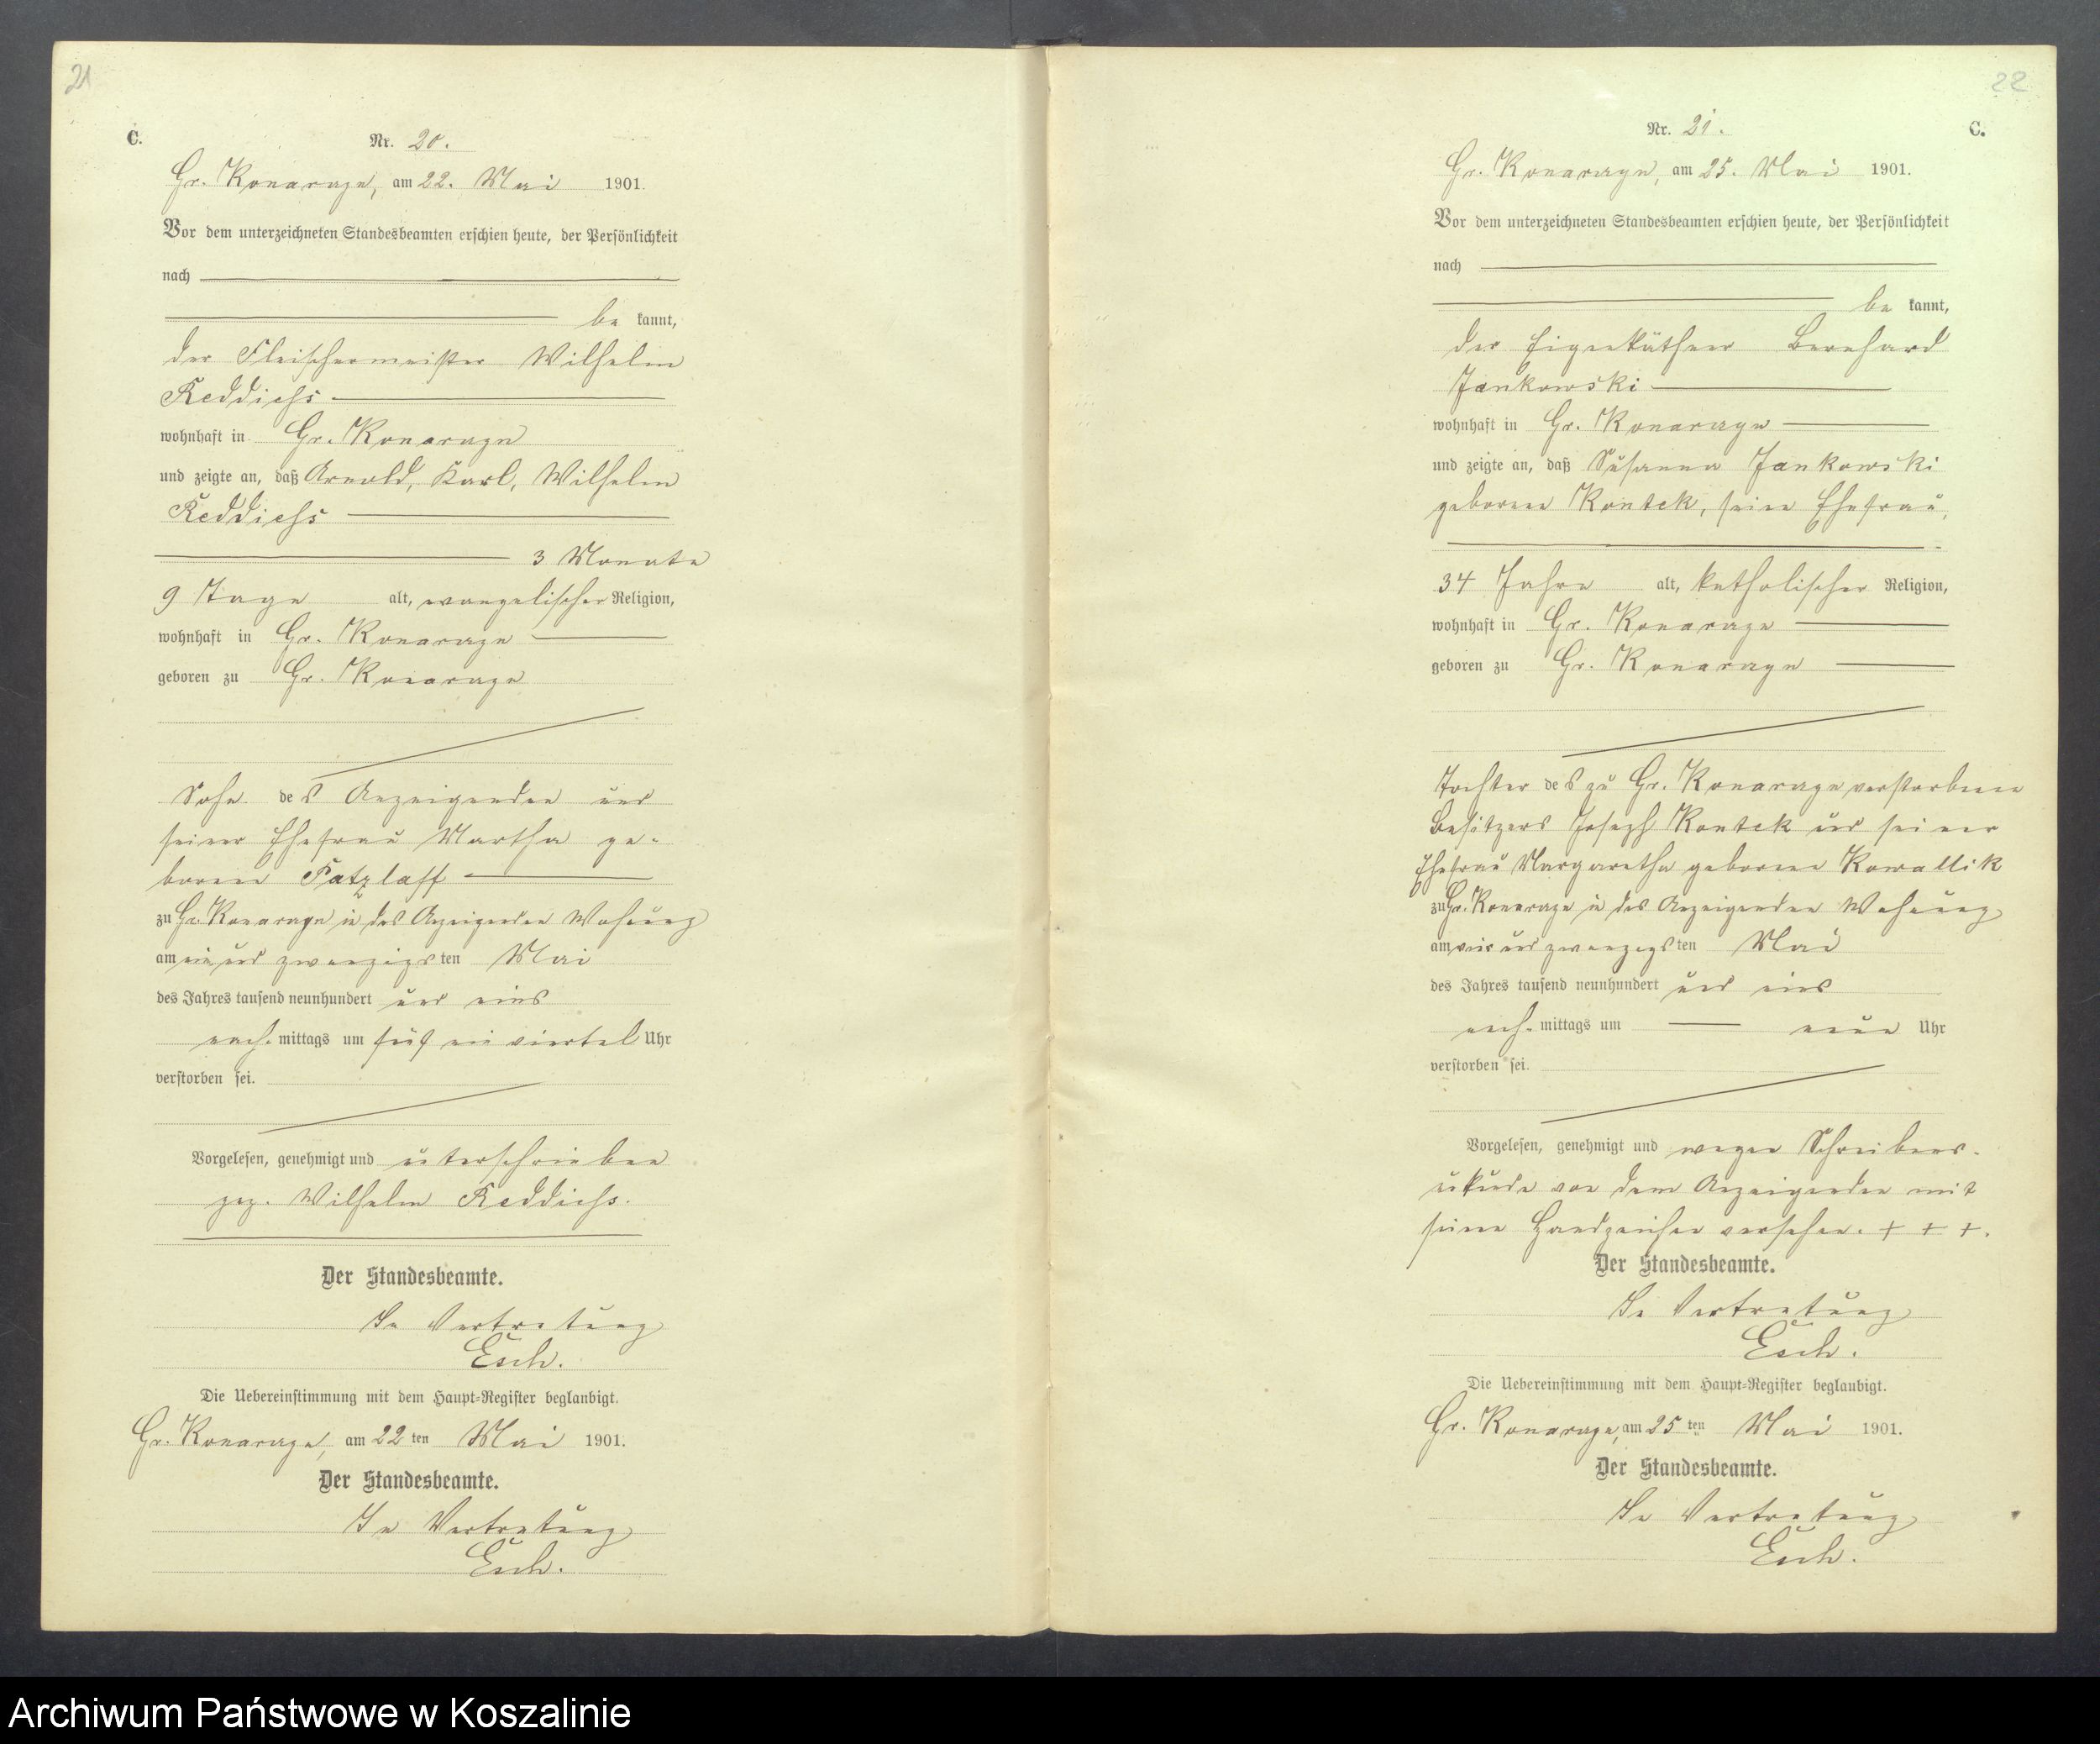 21
C.
Nr. 20.
Gr. Konarzyn, am 22. Mai 1901.
Vor dem unterzeichneten Standesbeamten erschien heute, der Persönlichkeit
nach
be kannt,
der Fleischermeister Wilhelm
Reddiehs
wohnhaft in Gr. Konarzyn
und zeigte an, daß Arnold, Karl, Wilhelm
Reddiehs
3 Monate
9 Tage alt, evangelischer Religion,
wohnhaft in Gr. Konarzyn
geboren zu Gr. Konarzyn
Sohn des Anzeigenden und
seiner Ehefrau Martha ge-
borene Patzlaff
zu Gr. Konarzyn in des Anzeigenden Wohnung
am ein und zwanzigsten Mai
des Jahres tausend neunhundert und eins
nach mittags um fünf ein viertel Uhr
verstorben sei.
Vorgelesen, genehmigt und unterschrieben
gez. Wilhelm Reddiehs.
Der Standesbeamte.
In Vertretung
Esch.
Die Uebereinstimmung mit dem Haupt-Register beglaubigt.
Gr. Konarzyn, am 22 ten Mai 1901.
Der Standesbeamte.
In Vertretung
Esch.
22
Nr. 21.
C.
Gr. Konarzyn, am 25. Mai 1901.
Vor dem unterzeichneten Standesbeamten erschien heute, der Persönlichkeit
nach
be kannt,
der Eigenkäthner Bernhard
Jankowski
wohnhaft in Gr. Konarzyn
und zeigte an, daß Susanna Jankowski
geborene Kontek, seine Ehefrau,
34 Jahre alt, katholischer Religion,
wohnhaft in Gr. Konarzyn
geboren zu Gr. Konarzyn
Tochter des zu Gr. Konarzyn verstorbenen
Besitzers Joseph Kontek und seiner
Ehefrau Margaretha geborene Kowallik
zu Gr. Konarzyn in des Anzeigenden Wohnung
am vier und zwanzigsten Mai
des Jahres tausend neunhundert und eins
nach mittags um neun Uhr
verstorben sei.
Vorgelesen, genehmigt und wegen Schreibens-
unkunde von dem Anzeigenden mit
seinen Handzeichen versehen. + + +.
Der Standesbeamte.
In Vertretung
Esch.
Die Uebereinstimmung mit dem Haupt-Register beglaubigt.
Gr. Konarzyn, am 25 ten Mai 1901.
Der Standesbeamte.
In Vertretung
Esch.
Archiwum Państwowe w Koszalinie